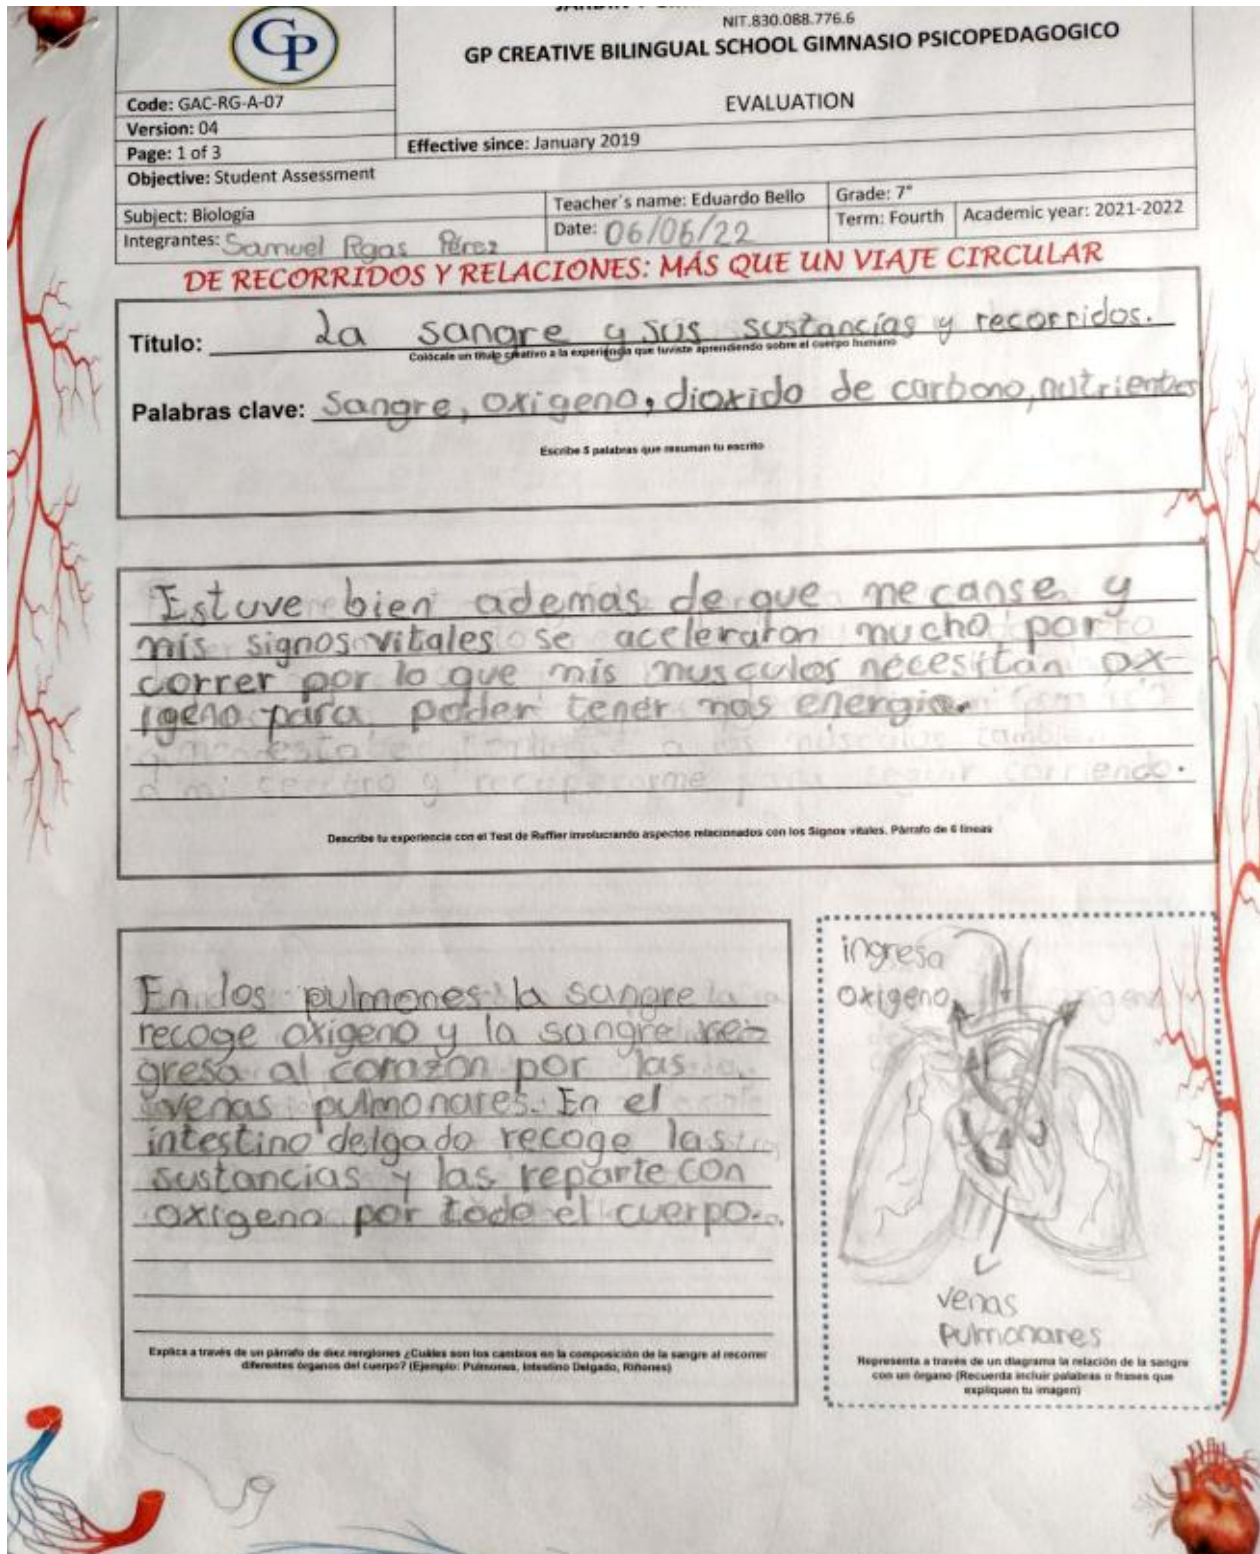 NIT.830.088.776.6
GP CREATIVE BILINGUAL SCHOOL GIMNASIO PSICOPEDAGOGICO
GP
EVALUATION
Code: GAC-RG-A-07
Version: 04
Page: 1 of 3
Effective since: January 2019
Objective: Student Assessment
Subject: Biología
Teacher´s name: Eduardo Bello
Grade: 7°
Integrantes: Samuel Rojas Pérez
Date: 06/06/22
Term: Fourth
Academic year: 2021-2022
DE RECORRIDOS Y RELACIONES: MÁS QUE UN VIAJE CIRCULAR
Título: La sangre y sus sustancías y recorridos.
Colócale un título creativo a la experiencia que tuviste aprendiendo sobre el cuerpo humano
Palabras clave: Sangre, oxigeno, dioxido de carbono, nutrientes
Escribe 5 palabras que resuman tu escrito
Estuve bien ademas de que me canse y
mis signos vitales se aceleraron mucho por
correr por lo que mis musculos necesitan ox-
igeno para poder tener mas energia.
a mi cerebro y recuperarme para seguir corriendo.
Describe tu experiencia con el Test de Ruffier involucrando aspectos relacionados con los Signos vitales. Párrafo de 6 líneas
En los pulmones la sangre
recoge oxigeno y la sangre re-
gresa al corazón por las
venas pulmonares. En el
intestino delgado recoge las
sustancias y las reparte con
oxigeno por todo el cuerpo.
Explica a través de un párrafo de diez renglones ¿Cuáles son los cambios en la composición de la sangre al recorrer
diferentes órganos del cuerpo? (Ejemplo: Pulmones, Intestino Delgado, Riñones)
ingresa
oxigeno
venas
pulmonares
Representa a través de un diagrama la relación de la sangre
con un órgano (Recuerda incluir palabras o frases que
expliquen tu imagen)